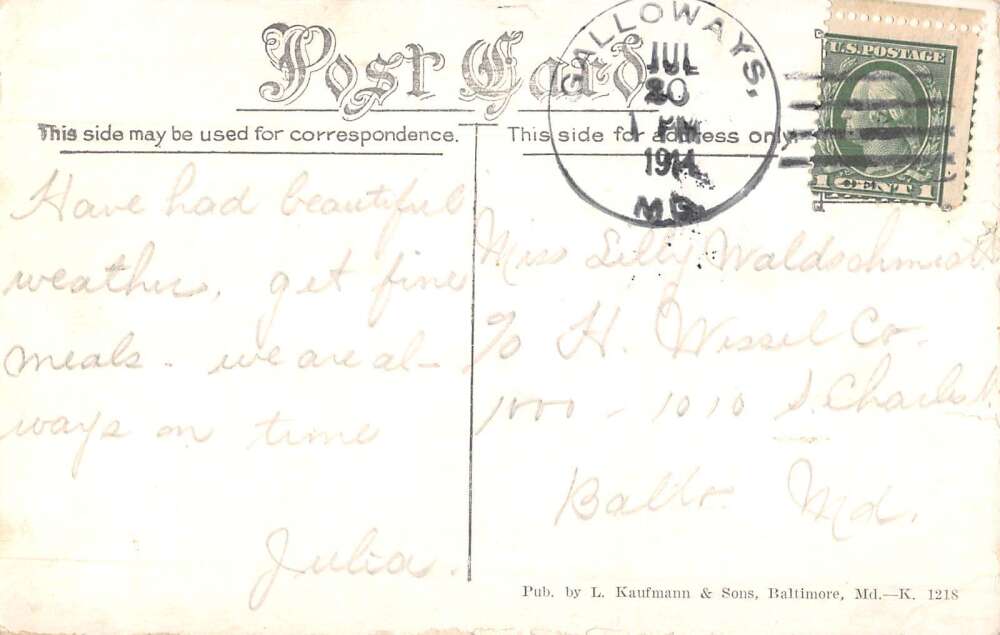 Post Card
GALLOWAYS,
JUL
20
1 PM
1914
MD.
U.S. POSTAGE
1 CENT 1
This side may be used for correspondence.
This side for address only.
Have had beautiful
weather, get fine
meals - we are al-
ways on time
Julia.
Miss Lilly Waldschmidt
c/o H. Wessel Co.
1000 - 1010 S. Charles
Balto. Md.
Pub. by L. Kaufmann & Sons, Baltimore, Md.—K. 1218